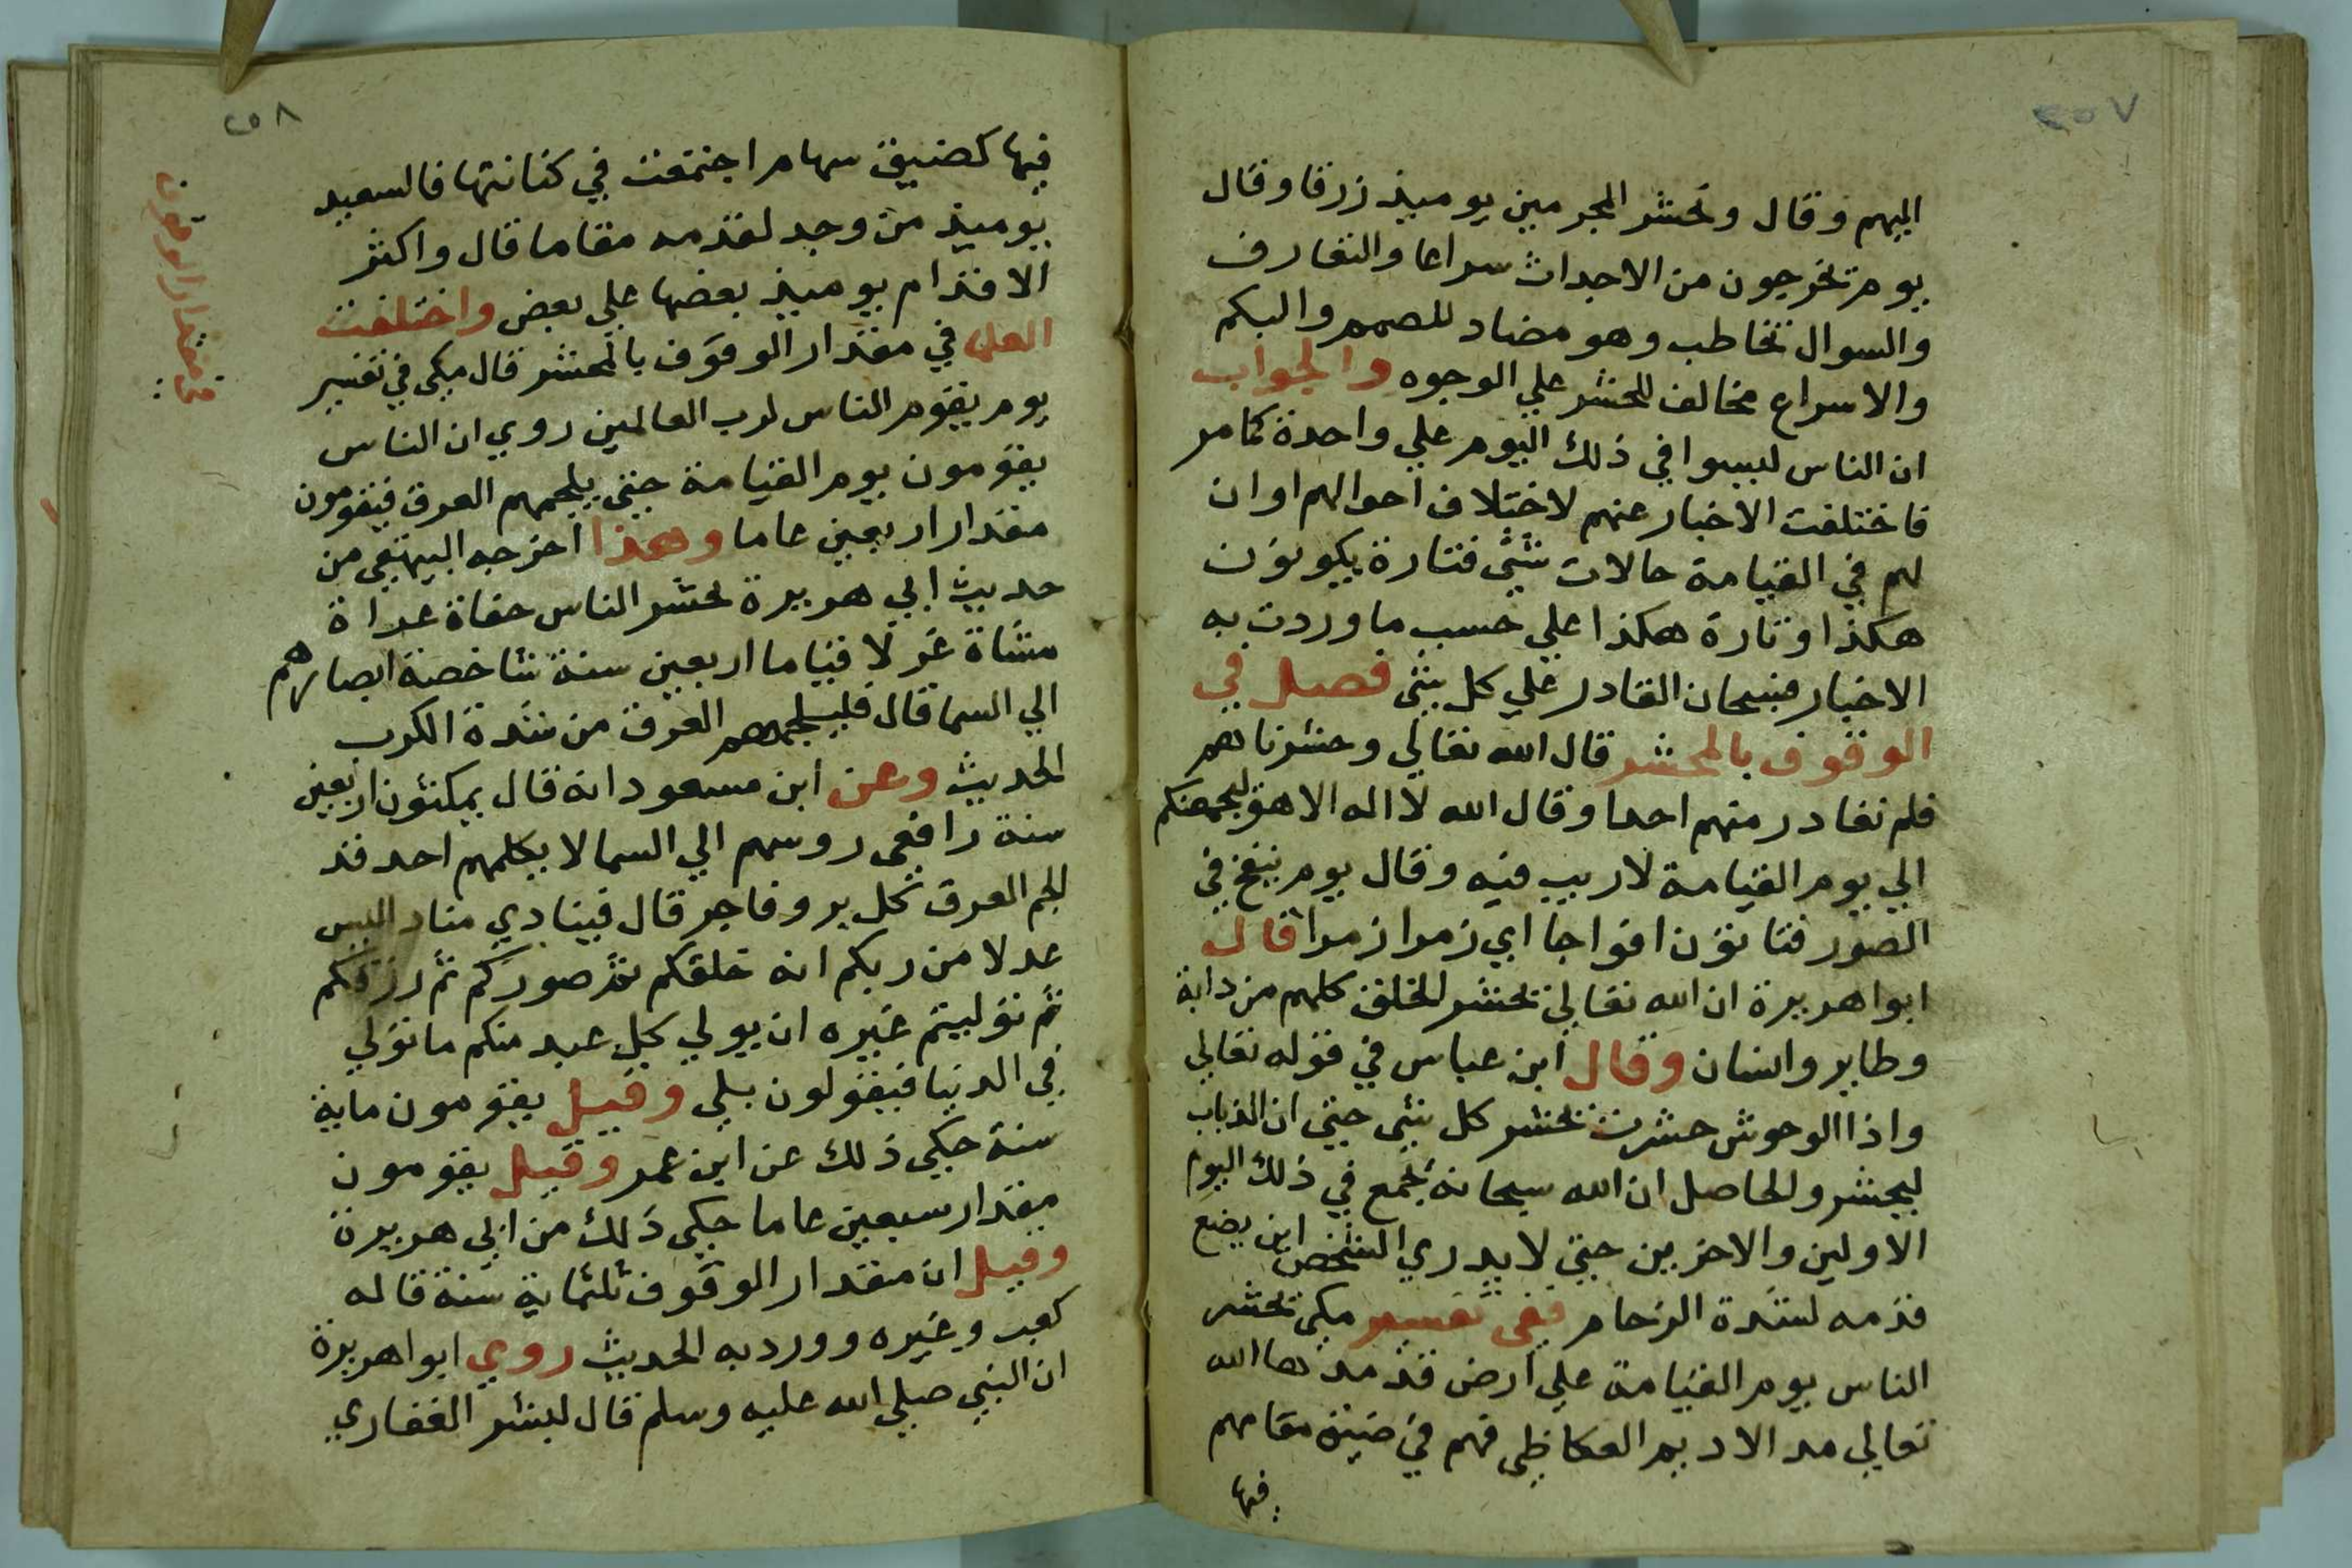 ٢٥٧
اليهم وقال ونحشر المجرمين يوميذ زرقا وقال
يوم تخرجون من الاجداث سراعا والتعارف
والسوال تخاطب وهو مضاد للصمم والبكم
والاسراع مخالف للحشر علي الوجوه والجواب
ان الناس ليسوا في ذلك اليوم علي واحدة كما مر
فاختلفت الاخبار عنهم لاختلاف احوالهم او ان
لهم في القيامة حالات شتي فتارة يكونون
هكذا وتارة هكذا علي حسب ما وردت به
الاخبار فسبحان القادر علي كل شي فصل في
الوقوف بالمحشر قال الله تعالي وحشرناهم
فلم نغادر منهم احدا وقال الله لا اله الا هو ليجمعنكم
الي يوم القيامة لا ريب فيه وقال يوم ينفخ في
الصور فتاتون افواجا اي زمرا زمرا قال
ابوا هريرة ان الله تعالي يحشر الخلق كلهم من دابة
وطاير وانسان وقال ابن عباس في قوله تعالي
واذا الوحوش حشرت يحشر كل شي حتي ان الذباب
ليحشر والحاصل ان الله سبحانه يجمع في ذلك اليوم
الاولين والاخرين حتي لا يدري الشخص اين يضع
قدمه لشدة الزحام ففي تفسير مكي تحشر
الناس يوم القيامة علي ارض قد مدها الله
تعالي مد الاديم العكاظي فهم في ضيق مقامهم
فيها
٢٥٨
فيها كضيق سهام اجتمعت في كنانتها فالسعيد
يوميذ من وجد لقدمه مقاما قال واكثر
الاقدام يوميذ بعضها علي بعض واختلفت
العلما في مقدار الوقوف بالمحشر قال مكي في تفسير
يوم يقوم الناس لرب العالمين روي ان الناس
يقومون يوم القيامة حتي يلجمهم العرق فيقومون
مقدار اربعين عاما وهكذا اخرجه البيهقي من
حديث ابي هريرة يحشر الناس حفاة عراة
مشاة غرلا قياما اربعين سنة شاخصة ابصارهم
الي السما قال فيلجمهم العرق من شدة الكرب
الحديث وعن ابن مسعود انه قال يمكثون اربعين
سنة رافعي روسهم الي السما لا يكلمهم احد قد
الجم العرق كل بر وفاجر قال فينادي مناد اليس
عدلا من ربكم انه خلقكم ثم صوركم ثم رزقكم
ثم توليتم غيره ان يولي كل عبد منكم ما تولي
في الدنيا فيقولون بلي وقيل يقومون ماية
سنة حكي ذلك عن ابن عمر وقيل يقومون
مقدار سبعين عاما حكي ذلك من ابي هريرة
وقيل ان مقدار الوقوف ثلثماية سنة قاله
كعب وغيره وورد به الحديث روي ابوا هريرة
ان النبي صلي الله عليه وسلم قال لبشر الغفاري
في مقدار الوقوف